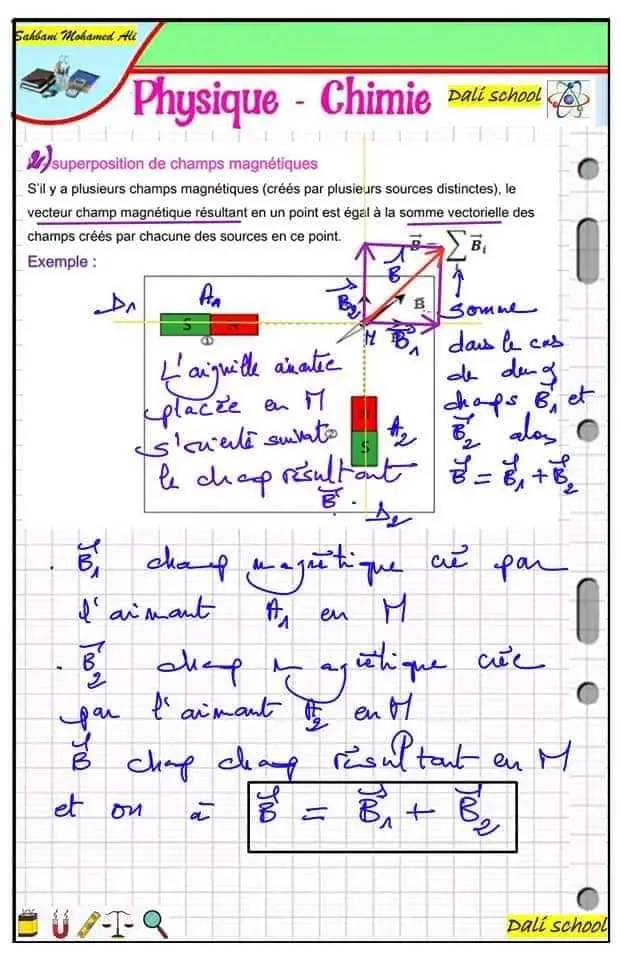 Sahbani Mohamed Ali
Physique - Chimie
Dali school
2) superposition de champs magnétiques
S'il y a plusieurs champs magnétiques (créés par plusieurs sources distinctes), le
vecteur champ magnétique résultant en un point est égal à la somme vectorielle des
champs créés par chacune des sources en ce point.
B⃗ = ∑ B⃗i
Exemple :
B⃗
B⃗2
B
somme
D1
A1
S N
①
M
B⃗1
L'aiguille aimantée
placée en M
s'oriente suivant
le champ résultant
B⃗.
N
S
②
A2
D2
dans le cas
de deux
champs B⃗1 et
B⃗2 alors
B⃗ = B⃗1 + B⃗2
. B⃗1 champ magnétique créé par
l'aimant A1 en M
. B⃗2 champ magnétique créé
par l'aimant A2 en M
B⃗ champ champ résultant en M
et on à B⃗ = B⃗1 + B⃗2
Dali school